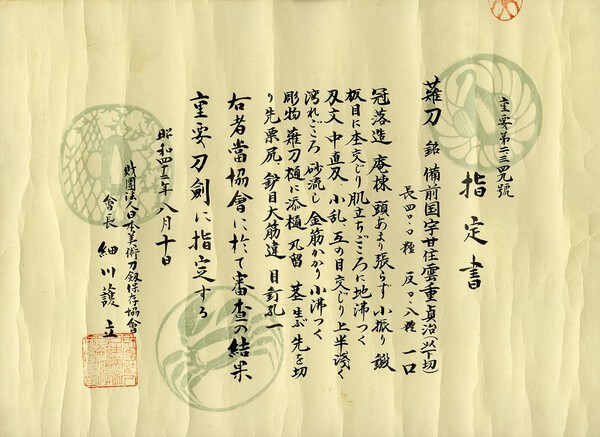 重要第二三四九號
指定書
薙刀 銘 備前国宇甘住雲重貞治(以下切)
長四〇・〇糎 反〇・八糎 一口
冠落造 庵棟 頭あまり張らず 小振り 鍛
板目に杢交じり肌立ちごころに地沸つく
刃文 中直刃、小乱、互の目交じり 上半浅く
湾れごころ 砂流し 金筋かかり 小沸つく
彫物 薙刀樋に添樋 丸留 茎 生ぶ 先を切
り 先栗尻、鑢目大筋違 目釘孔一
右者當協會に於て審査の結果
重要刀劍に指定する
昭和四十 年八月十日
財團法人日本美術刀剣保存協會
會長 細川護立